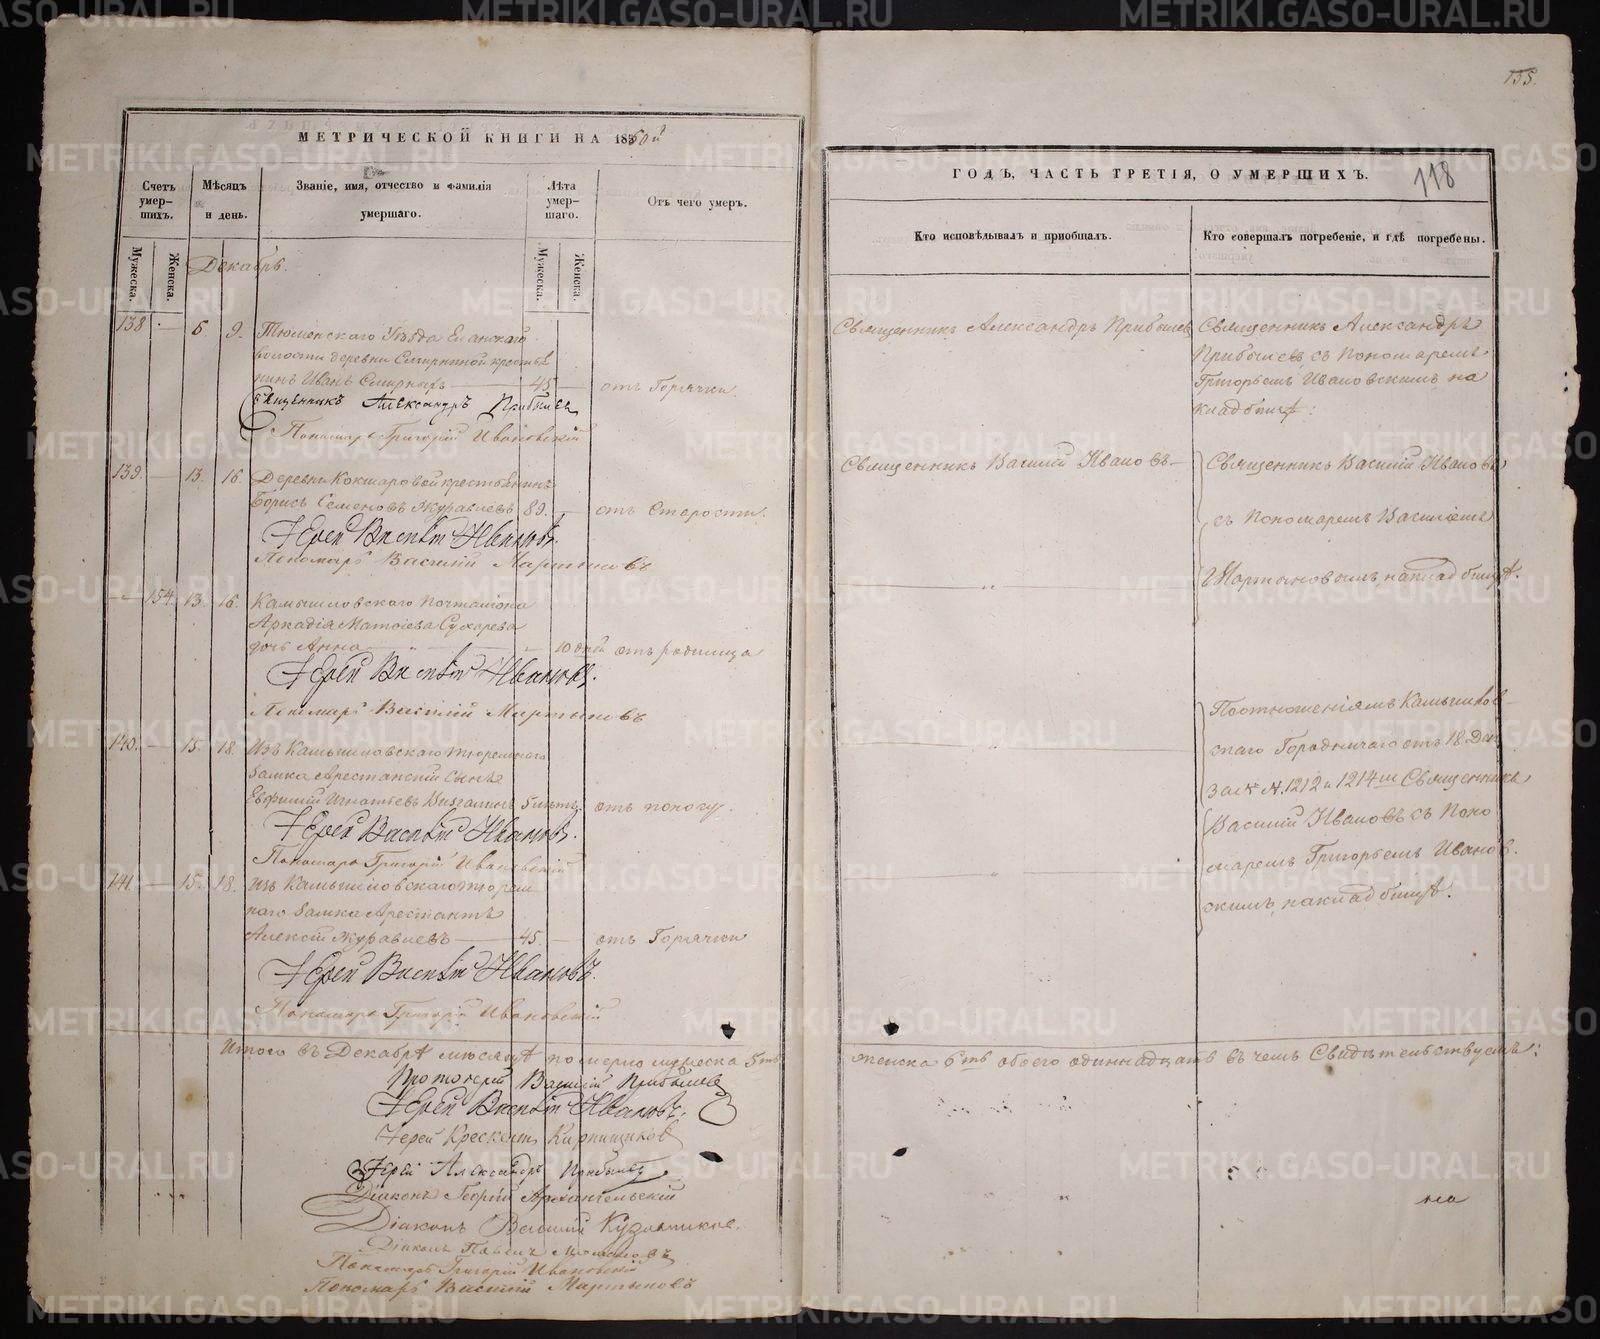 155.
118
МЕТРИЧЕСКОЙ КНИГИ НА 1850й
ГОДЪ, ЧАСТЬ ТРЕТІЯ, О УМЕРШИХЪ.
Счетъ умер-
шихъ.
Мѣсяцъ
и день.
Званіе, имя, отчество и фамилія
умершаго.
Лѣта
умер-
шаго.
Отъ чего умеръ.
Кто исповѣдывалъ и пріобщалъ.
Кто совершалъ погребеніе, и гдѣ погребены.
Мужеска.
Женска.
Мужеска.
Женска.
Декабрь.
138 — 6 9. Тюменскаго Уѣзда Еланской
волости деревни Смирнной крестья
нинъ Иванъ Смирныхъ — 45 — отъ Горячки
Священникъ Александръ Прибылев
Пономарь Григорій Ивановскій
Священникъ Александръ Прибылев
Священникъ Александръ
Прибылевъ съ Пономаремъ
Григорьемъ Ивановскимъ на
кладбищѣ:
139. — 13. 16. Деревни Кокшаровой крестьянинъ
Борисъ Семеновъ Журавлевъ 89. — отъ Старости.
Іерей Василій Ивановъ.
Пономарь Василій Мартыновъ
Священникъ Василій Ивановъ —
Священникъ Василій Ивановъ
съ Пономаремъ Василіемъ
Мартыновымъ, на кладбищѣ.
— 154. 13. 16. Камышловскаго Почталіона
Аркадія Матвіева Сухарева
дочь Анна — 10 дней отъ родимца
Іерей Василій Ивановъ.
Пономарь Василій Мартыновъ
140. — 15. 18. Изъ Камышловскаго тюремнаго
замка Арестанскій Сынъ
Евфимій Игнатьевъ 5 лѣтъ. отъ поносу.
Іерей Василій Ивановъ.
Пономарь Григорій Ивановскій
По отношеніямъ Камышлов
скаго Городничаго отъ 18 Дек.
За № № 1212 и 1214 Священникъ
Василій Ивановъ съ Поно
маремъ Григорьемъ Иванов
скимъ, на кладбищѣ.
141. — 15. 18. Изъ Камышловскаго тюрем
наго замка Арестантъ
Алексѣй Журавлевъ — 45. — отъ Горячки
Іерей Василій Ивановъ.
Пономарь Григорій Ивановскій
Итого въ Декабрѣ мѣсяцѣ померло мужеска 5ть
женска 6ть обоего одиннадцать въ чемъ Свидѣтельствуемъ:
Протоіерей Василій Прибылев
Іерей Василій Ивановъ.
Іерей Крескентъ Кирпищиков
Іерей Александръ Прибылев
Діаконъ Георгій Архангельскій
Діаконъ Василій
Діаконъ Павелъ
Пономарь Григорій Ивановскій
Пономарь Василій Мартыновъ
METRIKI.GASO-URAL.RU